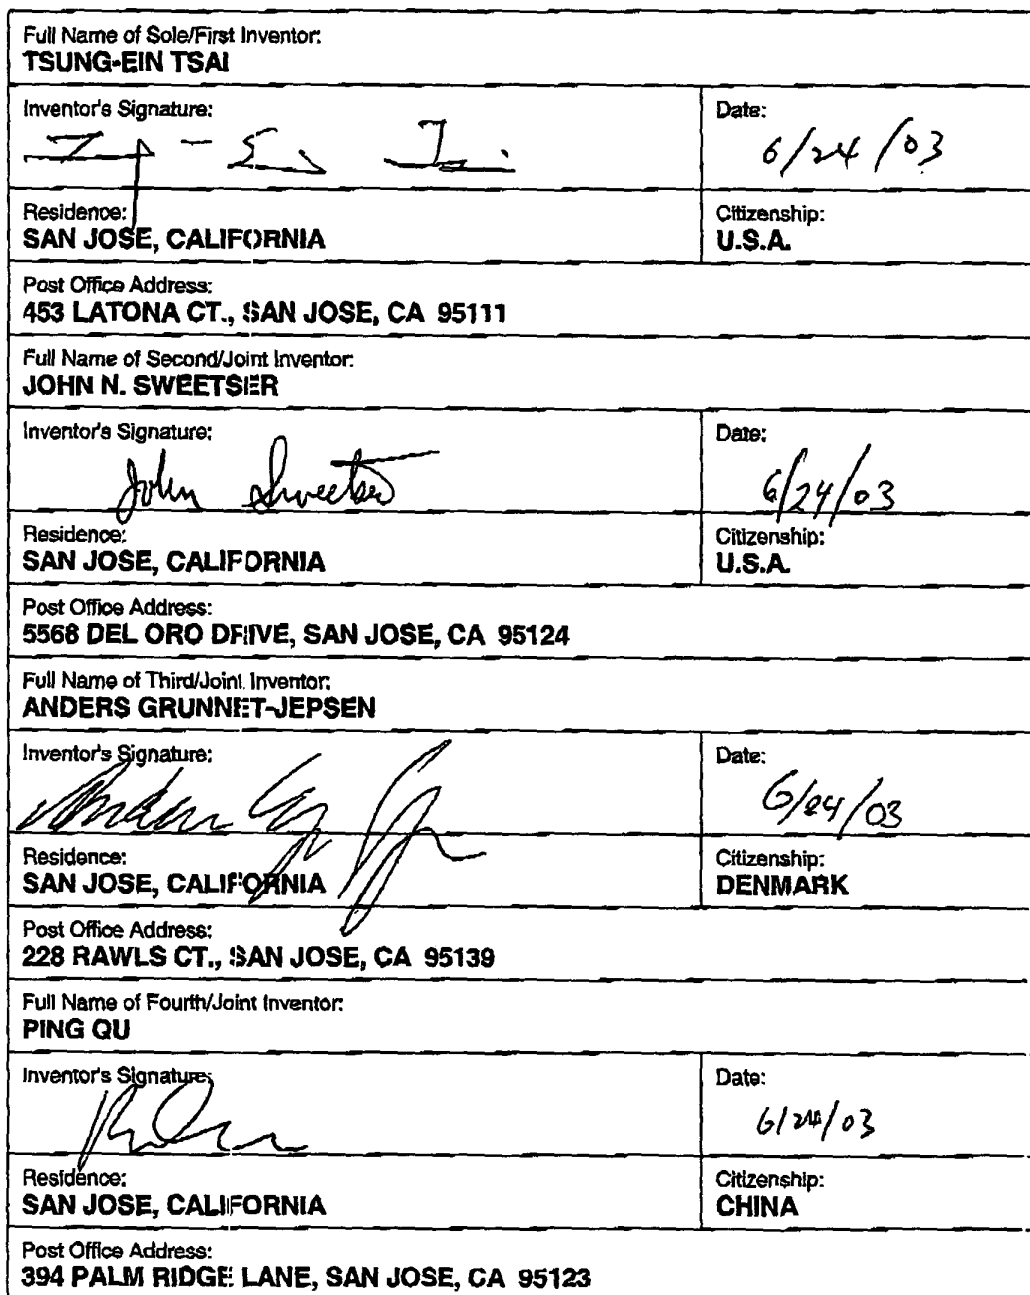 Full Name of Sole/First Inventor:
TSUNG-EIN TSAI
Inventor's Signature:
Date:
6/24/03
Residence:
SAN JOSE, CALIFORNIA
Citizenship:
U.S.A.
Post Office Address:
453 LATONA CT., SAN JOSE, CA 95111
Full Name of Second/Joint Inventor:
JOHN N. SWEETSER
Inventor's Signature:
John Sweetser
Date:
6/24/03
Residence:
SAN JOSE, CALIFORNIA
Citizenship:
U.S.A.
Post Office Address:
5568 DEL ORO DRIVE, SAN JOSE, CA 95124
Full Name of Third/Joint Inventor:
ANDERS GRUNNET-JEPSEN
Inventor's Signature:
Date:
6/24/03
Residence:
SAN JOSE, CALIFORNIA
Citizenship:
DENMARK
Post Office Address:
228 RAWLS CT., SAN JOSE, CA 95139
Full Name of Fourth/Joint Inventor:
PING QU
Inventor's Signature:
Date:
6/24/03
Residence:
SAN JOSE, CALIFORNIA
Citizenship:
CHINA
Post Office Address:
394 PALM RIDGE LANE, SAN JOSE, CA 95123